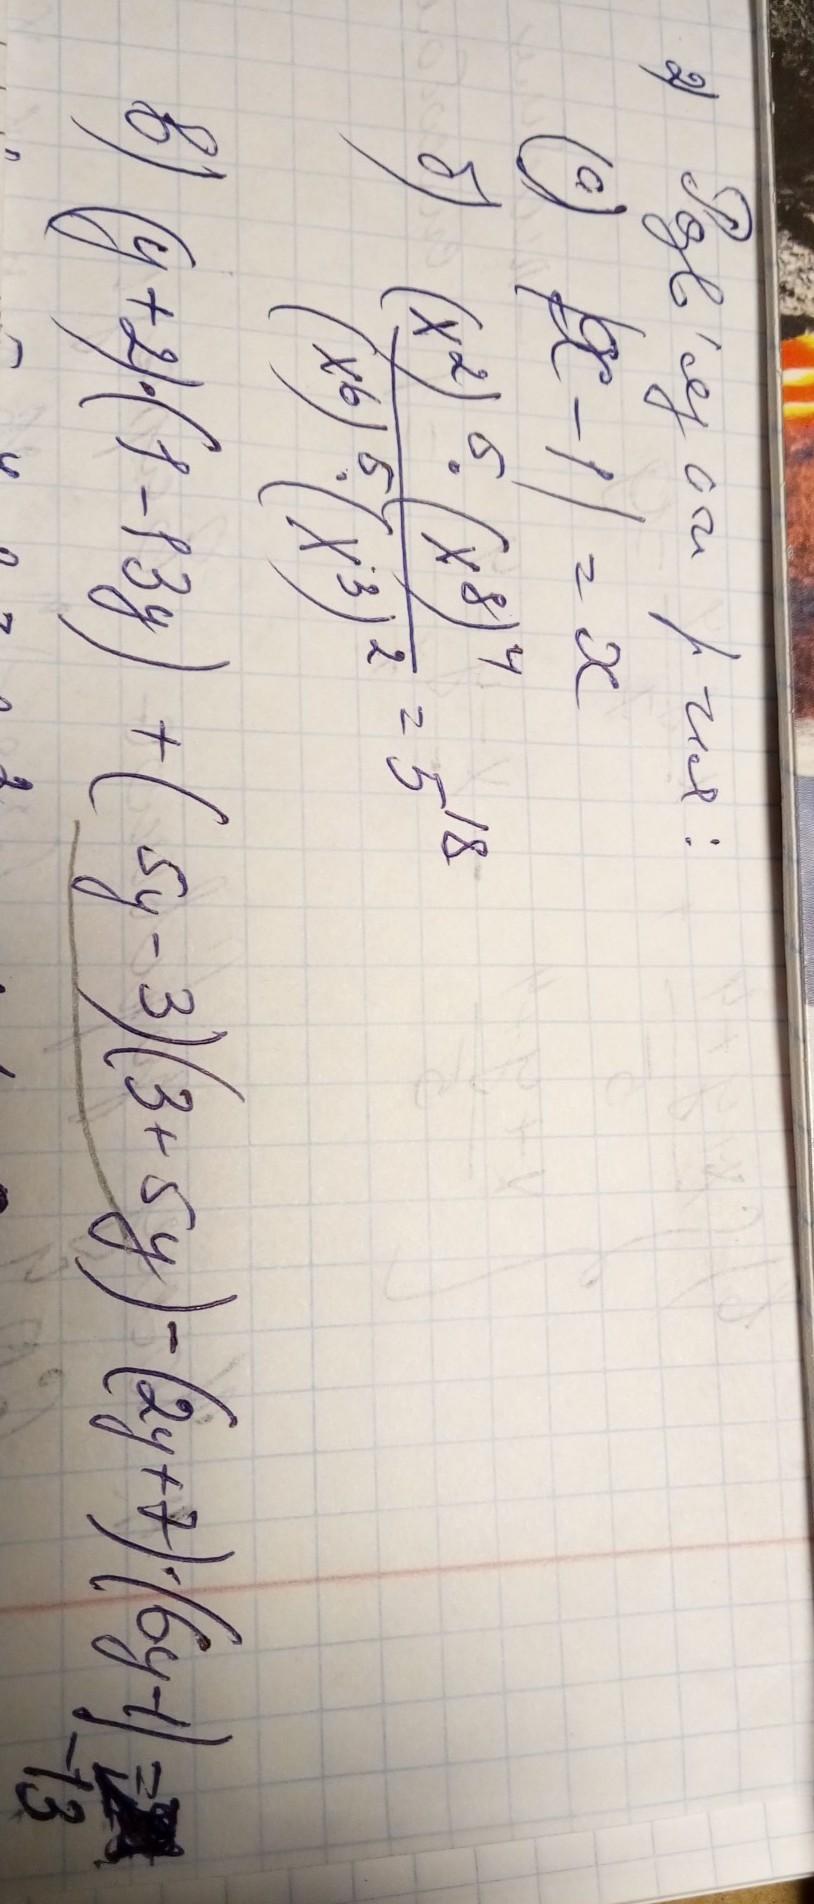 2) Розв'язати р-ння:
(а) |x - 1| = x
б) (x2)5 · (x8)4
(x6)5 · (x3)2 = 5 18
в) (y + 2) · (1 - 13y) + (5y - 3)(3 + 5y) - (2y + 7) · (6y - 1) = -13